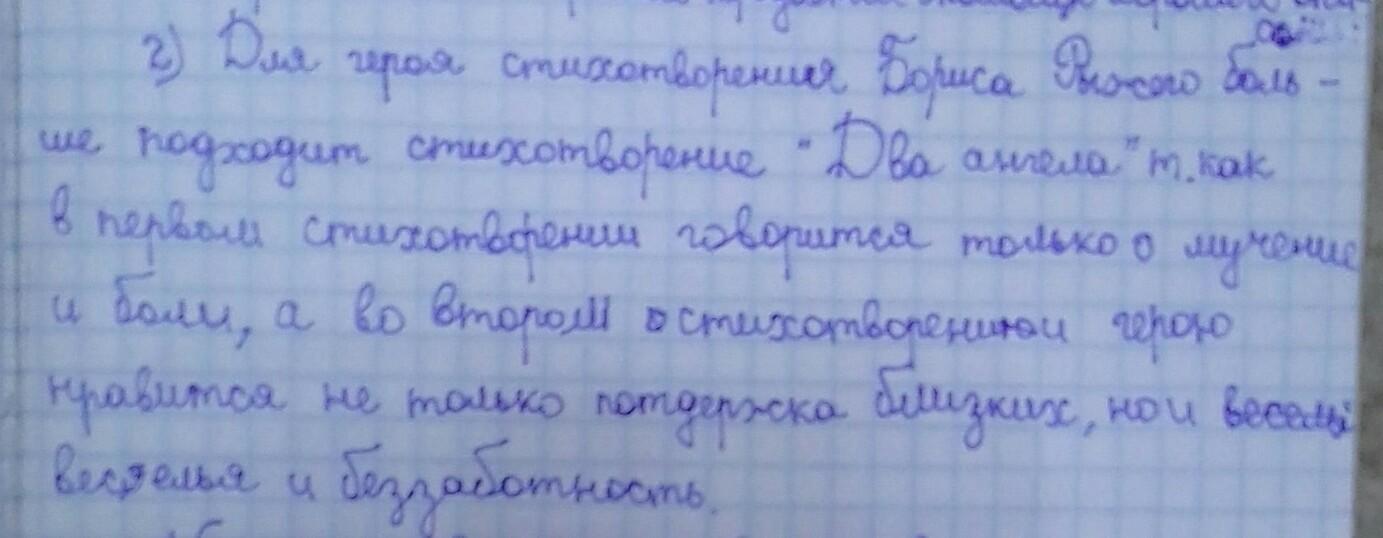 2) Для героя стихотворения Бориса Рыжего боль-
ше подходит стихотворение "Два ангела" т.как
в первом стихотворении говорится только о мучение
и боли, а во втором стихотворении герою
нравится не только потдержка близких, но и весель
веселья и беззаботность.